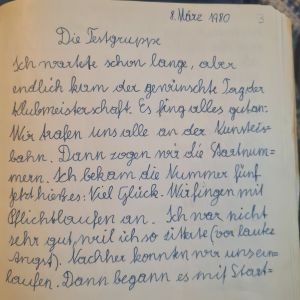 8. März 1980
3
Die Testgruppe
Ich wartete schon lange, aber
endlich kam der gewünschte Tag der
Klubmeisterschaft. Es fing alles gut an.
Wir trafen uns alle an der Kunsteis-
bahn. Dann zogen wir die Startnum-
mern. Ich bekam die Nummer fünf
Jetzt hiess es: Viel Glück. Wir fingen mit
Pflichtlaufen an. Ich war nicht
sehr gut, weil ich so zitterte (vor lauter
Angst). Nachher konnten wir uns ein-
laufen. Dann begann es mit Start=